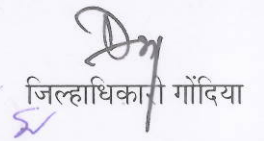 जिल्हाधिकारी गोंदिया